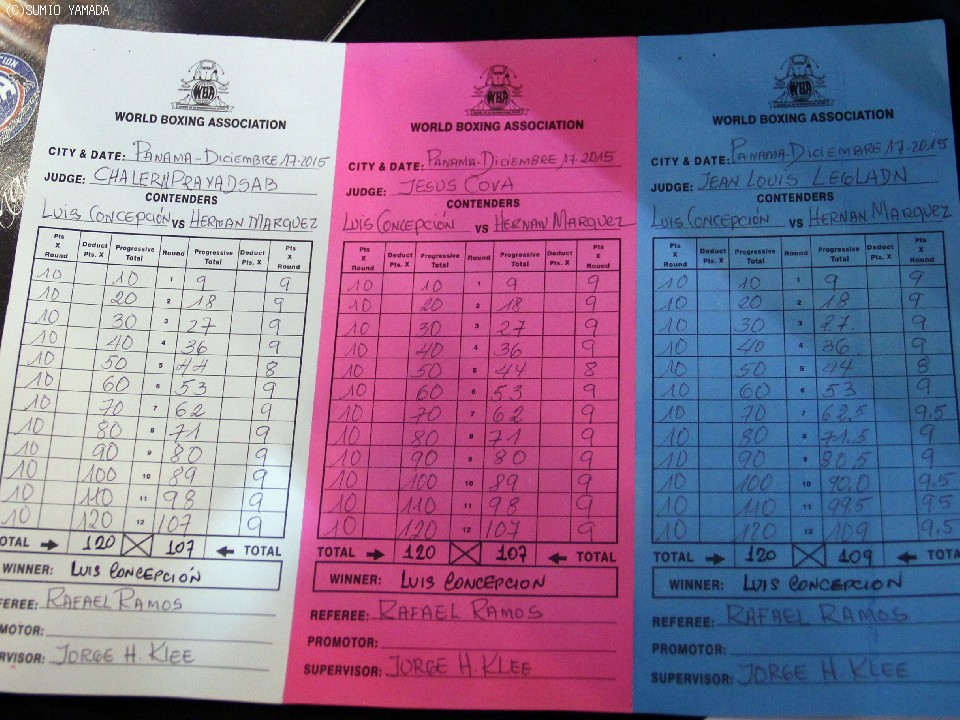 (C)SUMIO YAMADA
WBA
WORLD BOXING ASSOCIATION
CITY & DATE: PANAMA-DICIEMBRE 17-2015
JUDGE: CHALERN PRAYADSAB
CONTENDERS
LUIS CONCEPCIÓN VS HERNAN MARQUEZ
Pts X Round Deduct Pts. X Progressive Total Round Progressive Total Deduct Pts. X Pts X Round
10 10 1 9 9
10 20 2 18 9
10 30 3 27 9
10 40 4 36 9
10 50 5 44 8
10 60 6 53 9
10 70 7 62 9
10 80 8 71 9
10 90 9 80 9
10 100 10 89 9
10 110 11 98 9
10 120 12 107 9
OTAL 120 107 TOTAL
WINNER: LUIS CONCEPCIÓN
FEREE: RAFAEL RAMOS
MOTOR:
RVISOR: JORGE H. KLEE
WBA
WORLD BOXING ASSOCIATION
CITY & DATE: PANAMA-DICIEMBRE 17-2015
JUDGE: JESUS COVA
CONTENDERS
LUIS CONCEPCIÓN VS HERNAN MARQUEZ
Pts X Round Deduct Pts. X Progressive Total Round Progressive Total Deduct Pts. X Pts X Round
10 10 1 9 9
10 20 2 18 9
10 30 3 27 9
10 40 4 36 9
10 50 5 44 8
10 60 6 53 9
10 70 7 62 9
10 80 8 71 9
10 90 9 80 9
10 100 10 89 9
10 110 11 98 9
10 120 12 107 9
TOTAL 120 107 TOTAL
WINNER: LUIS CONCEPCION
REFEREE: RAFAEL RAMOS
PROMOTOR:
SUPERVISOR: JORGE H. KLEE
WBA
WORLD BOXING ASSOCIATION
CITY & DATE: PANAMA-DICIEMBRE 17-2015
JUDGE: JEAN LOUIS LEGLADN
CONTENDERS
LUIS CONCEPCIÓN VS HERNAN MARQUEZ
Pts X Round Deduct Pts. X Progressive Total Round Progressive Total Deduct Pts. X Pts X Round
10 10 1 9 9
10 20 2 18 9
10 30 3 27. 9
10 40 4 36 9
10 50 5 44 8
10 60 6 53 9
10 70 7 62.5 9.5
10 80 8 71.5 9
10 90 9 80.5 9
10 100 10 90.0 9.5
10 110 11 99.5 95
10 120 12 109 9.5
TOTAL 120 109 TOTA
WINNER: LUIS CONCEPCIÓN
REFEREE: RAFAEL RAMOS
PROMOTOR:
SUPERVISOR: JORGE H. KLEE